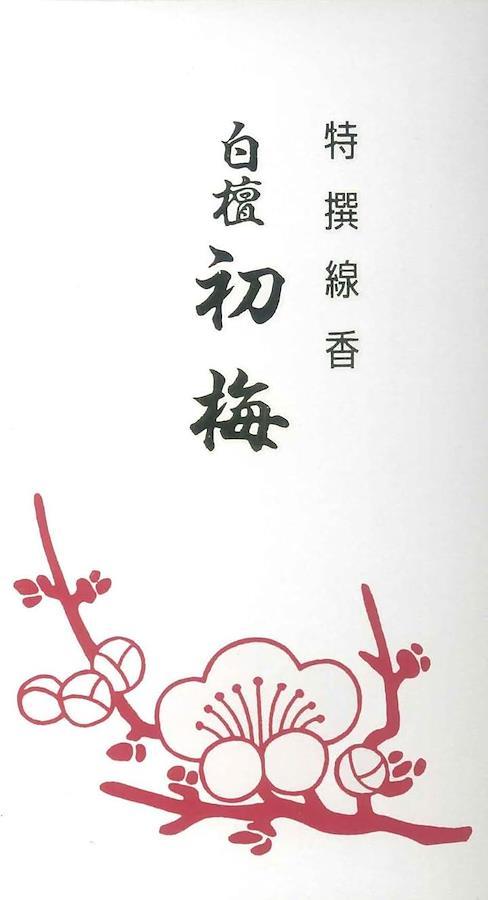 特撰線香
白檀
初梅